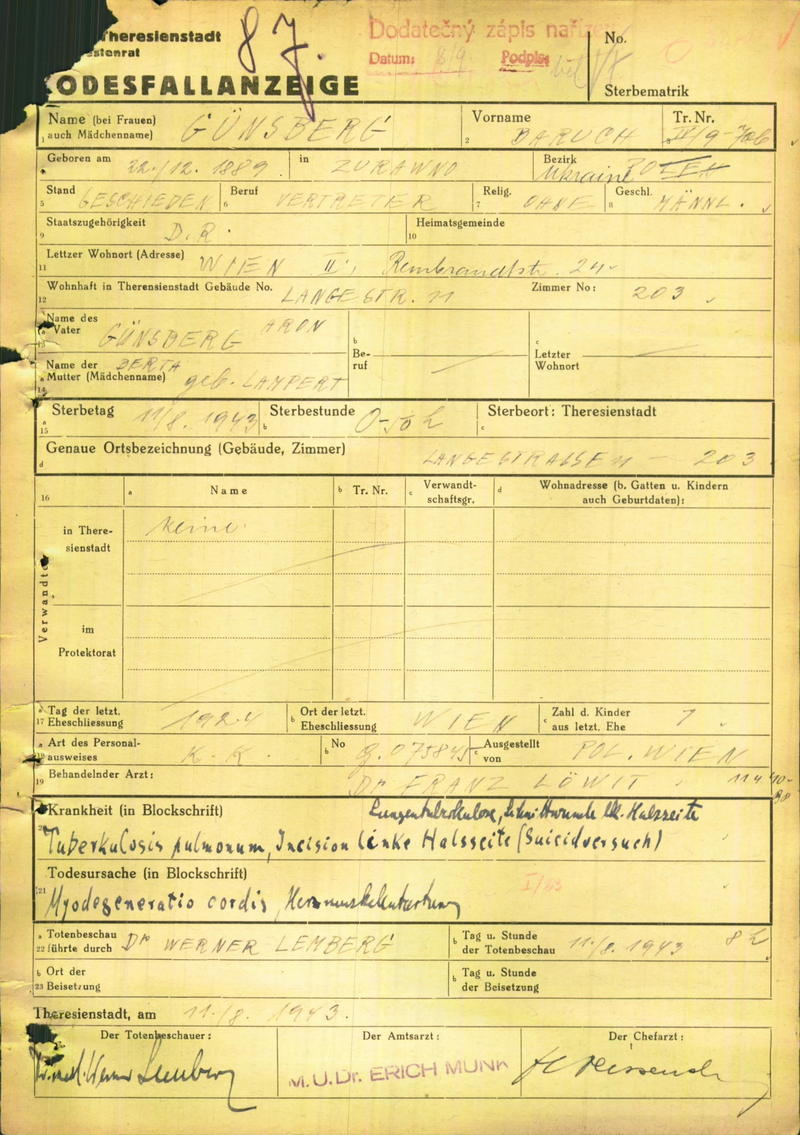 87.
Dodatečný zápis
Datum: 8/9 Podpis:
Theresienstadt
No.
TODESFALLANZEIGE
Sterbematrik
Name (bei Frauen) GÜNSBERG Vorname BARUCH Tr. Nr. IV/9-706
1 auch Mädchenname) 2 3
Geboren am 22./12. 1889. in ZURAWNO Bezirk Ukraine POLEN
Stand GESCHIEDEN Beruf VERTRETER Relig. OHNE Geschl. MÄNNL.
5 6 7 8
Staatszugehörigkeit D.R. Heimatsgemeinde
9 10
Letzter Wohnort (Adresse) WIEN II., Rembrandtstr. 24.
11
Wohnhaft in Theresienstadt Gebäude No. LANGESTR. 11 Zimmer No: 203
12
Name des Vater GÜNSBERG ARON b Beruf c Letzter Wohnort
Name der Mutter (Mädchenname) BERTA geb. LAMPERT
Sterbetag 11/8. 1943 Sterbestunde 0-50 h Sterbeort: Theresienstadt
15 a b c
Genaue Ortsbezeichnung (Gebäude, Zimmer) LANGESTRASSE 11 - 203
d
16 a Name b Tr. Nr. c Verwandtschaftsgr. d Wohnadresse (b. Gatten u. Kindern auch Geburtdaten):
Verwandte
in Theresienstadt keine
im Protektorat
17 a Tag der letzt. Eheschliessung b Ort der letzt. Eheschliessung WIEN c Zahl d. Kinder aus letzt. Ehe 1
a Art des Personalausweises K.K. b No c Ausgestellt von POL. WIEN
19 Behandelnder Arzt: Dr FRANZ LÖWIT
Krankheit (in Blockschrift) Lungentuberkulose, Schnittwunde lk. Halsseite
Tuberkulosis pulmonum, Incision linke Halsseite (Suicidversuch)
Todesursache (in Blockschrift)
21 Myodegeneratio cordis, Herzmuskelentartung
a Totenbeschau Dr WERNER LEMBERG b Tag u. Stunde 11./8. 1943 8 h
22 führte durch der Totenbeschau
b Ort der b Tag u. Stunde
23 Beisetzung der Beisetzung
Theresienstadt, am 11./8. 1943.
Der Totenbeschauer: Der Amtsarzt: Der Chefarzt:
Dr. med. Werner Lemberg M.U.Dr. ERICH MUNK